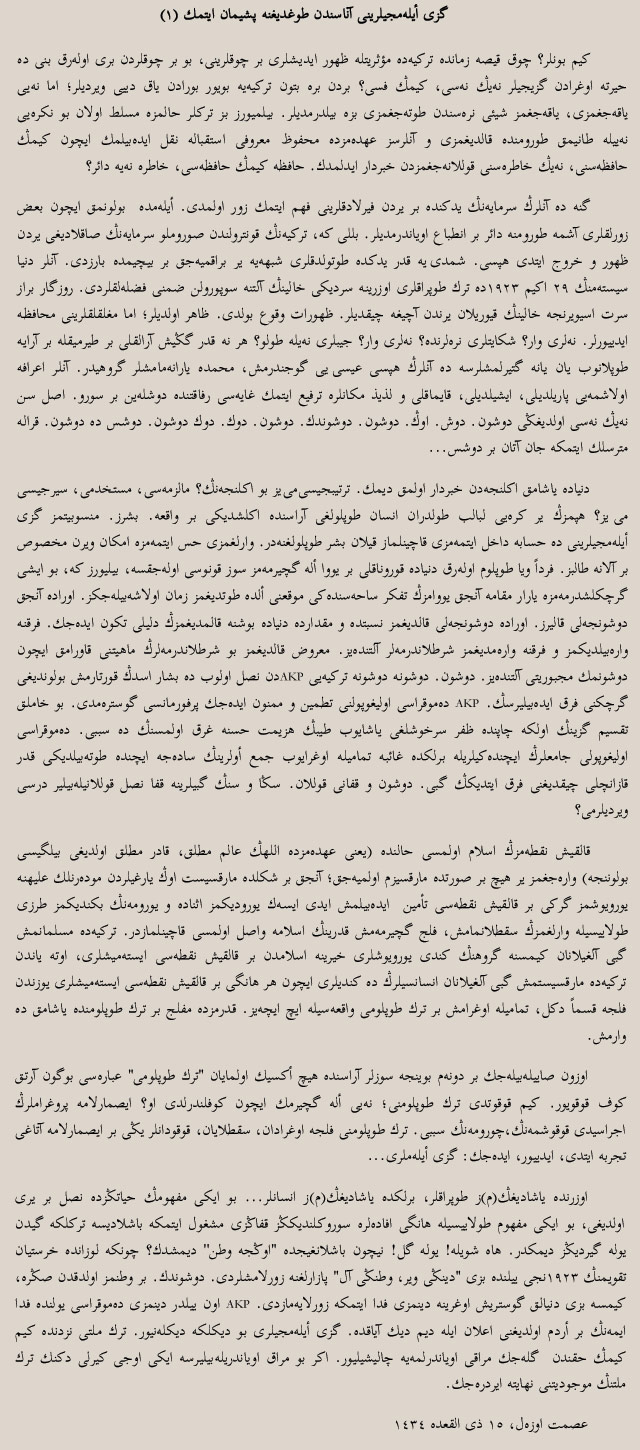 گزی أیله‌مجیلرینی آناسندن طوغدیغنه پشیمان ایتمك (۱)
كیم بونلر؟ چوق قیصه زمانده تركیه‌ده مؤثریتله ظهور ایدیشلری بر چوقلرینی، بو بر چوقلردن بری اوله‌رق بنی ده
حیرته اوغرادن گزیجیلر نه‌یڭ نه‌سی، كیمڭ فسی؟ بردن بره بتون تركیه‌یه بویور بورادن یاق دییی ویردیلر؛ اما نه‌یی
یاقه‌جغمزی، یاقه‌جغمز شیئی نره‌سندن طوته‌جغمزی بزه بیلدرمدیلر. بیلمیورز بز تركلر حالمزه مسلط اولان بو نكره‌یی
نه‌ییله طانیمق طورومنده قالدیغمزی و آنلرسز عهده‌مزده محفوظ معروفی استقباله نقل ایده‌بیلمك ایچون كیمڭ
حافظه‌سنی، نه‌یڭ خاطره‌سنی قوللانه‌جغمزدن خبردار ایدلمدك. حافظه كیمڭ حافظه‌سی، خاطره نه‌یه دائر؟
گنه ده آنلرڭ سرمایه‌نڭ یدكنده بر یردن فیرلادقلرینی فهم ایتمك زور اولمدی. أیله‌مده بولونمق ایچون بعض
زورلقلری آشمه طورومنه دائر بر انطباع اویاندرمدیلر. بللی كه، تركیه‌نڭ قونترولندن صوروملو سرمایه‌نڭ صاقلادیغی یردن
ظهور و خروج ایتدی هپسی. شمدی یه قدر یدكده طوتولدقلری شبهه‌یه یر براقمیه‌جق بر بیچیمده بارزدی. آنلر دنیا
سیسته‌منڭ ۲۹ اكیم ۱۹۲۳ده ترك طوپراقلری اوزرینه سردیكی خالینڭ آلتنه سوپورولن ضمنی فضله‌لقلردی. روزگار براز
سرت اسیویرنجه خالینڭ قیوریلان یرندن آچیغه چیقدیلر. ظهورات وقوع بولدی. ظاهر اولدیلر؛ اما مغلقلقلرینی محافظه
ایدییورلر. نه‌لری وار؟ شكایتلری نره‌لرنده؟ نه‌لری وار؟ جیبلری نه‌یله طولو؟ هر نه قدر گڭیش آرالقلی بر طیرمیقله بر آرایه
طوپلانوب یان یانه گتیرلمشلرسه ده آنلرڭ هپسی عیسی یی گوجندرمش، محمده یارانه‌مامشلر گروهیدر. آنلر اعرافه
اولاشمه‌یی پاریلدیلی، ایشیلدیلی، قایماقلی و لذیذ مكانلره ترفیع ایتمك غایه‌سی رفاقتنده دوشله‌ین بر سورو. اصل سن
نه‌یڭ نه‌سی اولدیغڭی دوشون. دوش. اوڭ. دوشون. دوشوندك. دوشون. دوك. دوك دوشون. دوشس ده دوشون. قراله
مترسلك ایتمكه جان آتان بر دوشس...
دنیاده یاشامق اكلنجه‌دن خبردار اولمق دیمك. ترتیبجیسی‌می‌یز بو اكلنجه‌نڭ؟ مالزمه‌سی، مستخدمی، سیرجیسی
می یز؟ هپمزڭ یر كره‌یی لبالب طولدران انسان طوپلولغی آراسنده اكلشدیكی بر واقعه. بشرز. منسوبیتمز گزی
أیله‌مجیلرینی ده حسابه داخل ایتمه‌مزی قاچینلماز قیلان بشر طوپلولغنه‌در. وارلغمزی حس ایتمه‌مزه امكان ویرن مخصوص
بر آلانه طالبز. فرداً ویا طوپلوم اوله‌رق دنیاده قوروناقلی بر یووا أله گچیرمه‌مز سوز قونوسی اوله‌جقسه، بیلیورز كه، بو ایشی
گرچكلشدرمه‌مزه یارار مقامه آنجق یووامزڭ تفكر ساحه‌سنده‌كی موقعنی ألده طوتدیغمز زمان اولاشه‌بیله‌جكز. اوراده آنجق
دوشونجه‌لی قالیرز. اوراده دوشونجه‌لی قالدیغمز نسبتده و مقدارده دنیاده بوشنه قالمدیغمزڭ دلیلی تكون ایده‌جك. فرقنه
واره‌بیلدیكمز و فرقنه واره‌مدیغمز شرطلاندرمه‌لر آلتنده‌یز. معروض قالدیغمز بو شرطلاندرمه‌لرڭ ماهیتنی قاورامق ایچون
دوشونمك مجبوریتی آلتنده‌یز. دوشون. دوشونه دوشونه تركیه‌یی AKPدن نصل اولوب ده بشار اسدڭ قورتارمش بولوندیغی
گرچكنی فرق ایده‌بیلیرسڭ. AKP ده‌موقراسی اولیغوپولنی تطمین و ممنون ایده‌جك پرفورمانسی گوستره‌مدی. بو خاملق
تقسیم گزینڭ اولكه چاپنده ظفر سرخوشلغی یاشایوب طیبڭ هزیمت حسنه غرق اولمسنڭ ده سببی. ده‌موقراسی
اولیغوپولی جامعلرڭ ایچنده‌كیلریله برلكده غائبه تمامیله اوغرایوب جمع أولرینڭ ساده‌جه ایچنده طوته‌بیلدیكی قدر
قازانچلی چیقدیغنی فرق ایتدیكڭ گبی. دوشون و قفانی قوللان. سڭا و سنڭ گبیلرینه قفا نصل قوللانیله‌بیلیر درسی
ویردیلرمی؟
قالقیش نقطه‌مزڭ اسلام اولمسی حالنده (یعنی عهده‌مزده اللهڭ عالم مطلق، قادر مطلق اولدیغی بیلگیسی
بولوننجه) واره‌جغمز یر هیچ بر صورتده ماركسیزم اولمیه‌جق؛ آنجق بر شكلده مارقسیست اوڭ یارغیلردن موده‌رنلك علیهنه
یورویوشمز گركی بر قالقیش نقطه‌سی تأمین ایده‌بیلمش ایدی ایسه‌ك یورودیكمز اثناده و یورومه‌نڭ بكندیكمز طرزی
طولاییسیله وارلغمزڭ سقطلانمامش، فلج گچیرمه‌مش قدرینڭ اسلامه واصل اولمسی قاچینلمازدر. تركیه‌ده مسلمانمش
گبی آلغیلانان كیمسنه گروهنڭ كندی یورویوشلری خیرینه اسلامدن بر قالقیش نقطه‌سی ایسته‌میشلری، اوته یاندن
تركیه‌ده مارقسیستمش گبی آلغیلانان انسانسیلرڭ ده كندیلری ایچون هر هانگی بر قالقیش نقطه‌سی ایسته‌میشلری یوزندن
فلجه قسماً دكل، تمامیله اوغرامش بر ترك طوپلومی واقعه‌سیله ایچ ایچه‌یز. قدرمزده مفلج بر ترك طوپلومنده یاشامق ده
وارمش.
اوزون صاییله‌بیله‌جك بر دونه‌م بوینجه سوزلر آراسنده هیچ أكسیك اولمایان "ترك طوپلومی" عباره‌سی بوگون آرتق
كوف قوقویور. كیم قوقوتدی ترك طوپلومنی؛ نه‌یی أله گچیرمك ایچون كوفلندرلدی او؟ ایصمارلامه پروغراملرڭ
اجراسیدی قوقوشمه‌نڭ،چورومه‌نڭ سببی. ترك طوپلومنی فلجه اوغرادان، سقطلایان، قوقودانلر یڭی بر ایصمارلامه آتاغی
تجربه ایتدی، ایدییور، ایده‌جك: گزی أیله‌ملری...
اوزرنده یاشادیغڭ(م)ز طوپراقلر، برلكده یاشادیغڭ(م)ز انسانلر... بو ایكی مفهومڭ حیاتڭزده نصل بر یری
اولدیغی، بو ایكی مفهوم طولاییسیله هانگی افاده‌لره سوروكلندیككز قفاڭزی مشغول ایتمكه باشلادیسه تركلكه گیدن
یوله گیردیڭز دیمكدر. هاه شویله! یوله گل! نیچون باشلانغیجده "اوڭجه وطن" دیمشدك؟ چونكه لوزانده خرستیان
تقویمنڭ ۱۹۲۳نجی ییلنده بزی "دینڭی ویر، وطنڭی آل" پازارلغنه زورلامشلردی. دوشوندك. بر وطنمز اولدقدن صڭره،
كیمسه بزی دنیالق گوستریش اوغرینه دینمزی فدا ایتمكه زورلایه‌مازدی. AKP اون ییلدر دینمزی ده‌موقراسی یولنده فدا
ایمه‌نڭ بر أردم اولدیغنی اعلان ایله دیم دیك آیاقده. گزی أیله‌مجیلری بو دیكلكه دیكله‌نیور. ترك ملتی نزدنده كیم
كیمڭ حقندن گله‌جك مراقی اویاندرلمه‌یه چالیشیلیور. اكر بو مراق اویاندریله‌بیلیرسه ایكی اوجی كیرلی دكنك ترك
ملتنڭ موجودیتنی نهایته ایردره‌جك.
عصمت اوزه‌ل، ۱۵ ذی القعده ۱٤۳٤